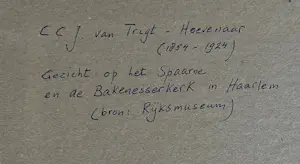 C C J. van Truyt - Hoevenaar
(1854 - 1924)
Gezicht op het Spaarne
en de Bakenesserkerk in Haarlem
(bron: Rijksmuseum)